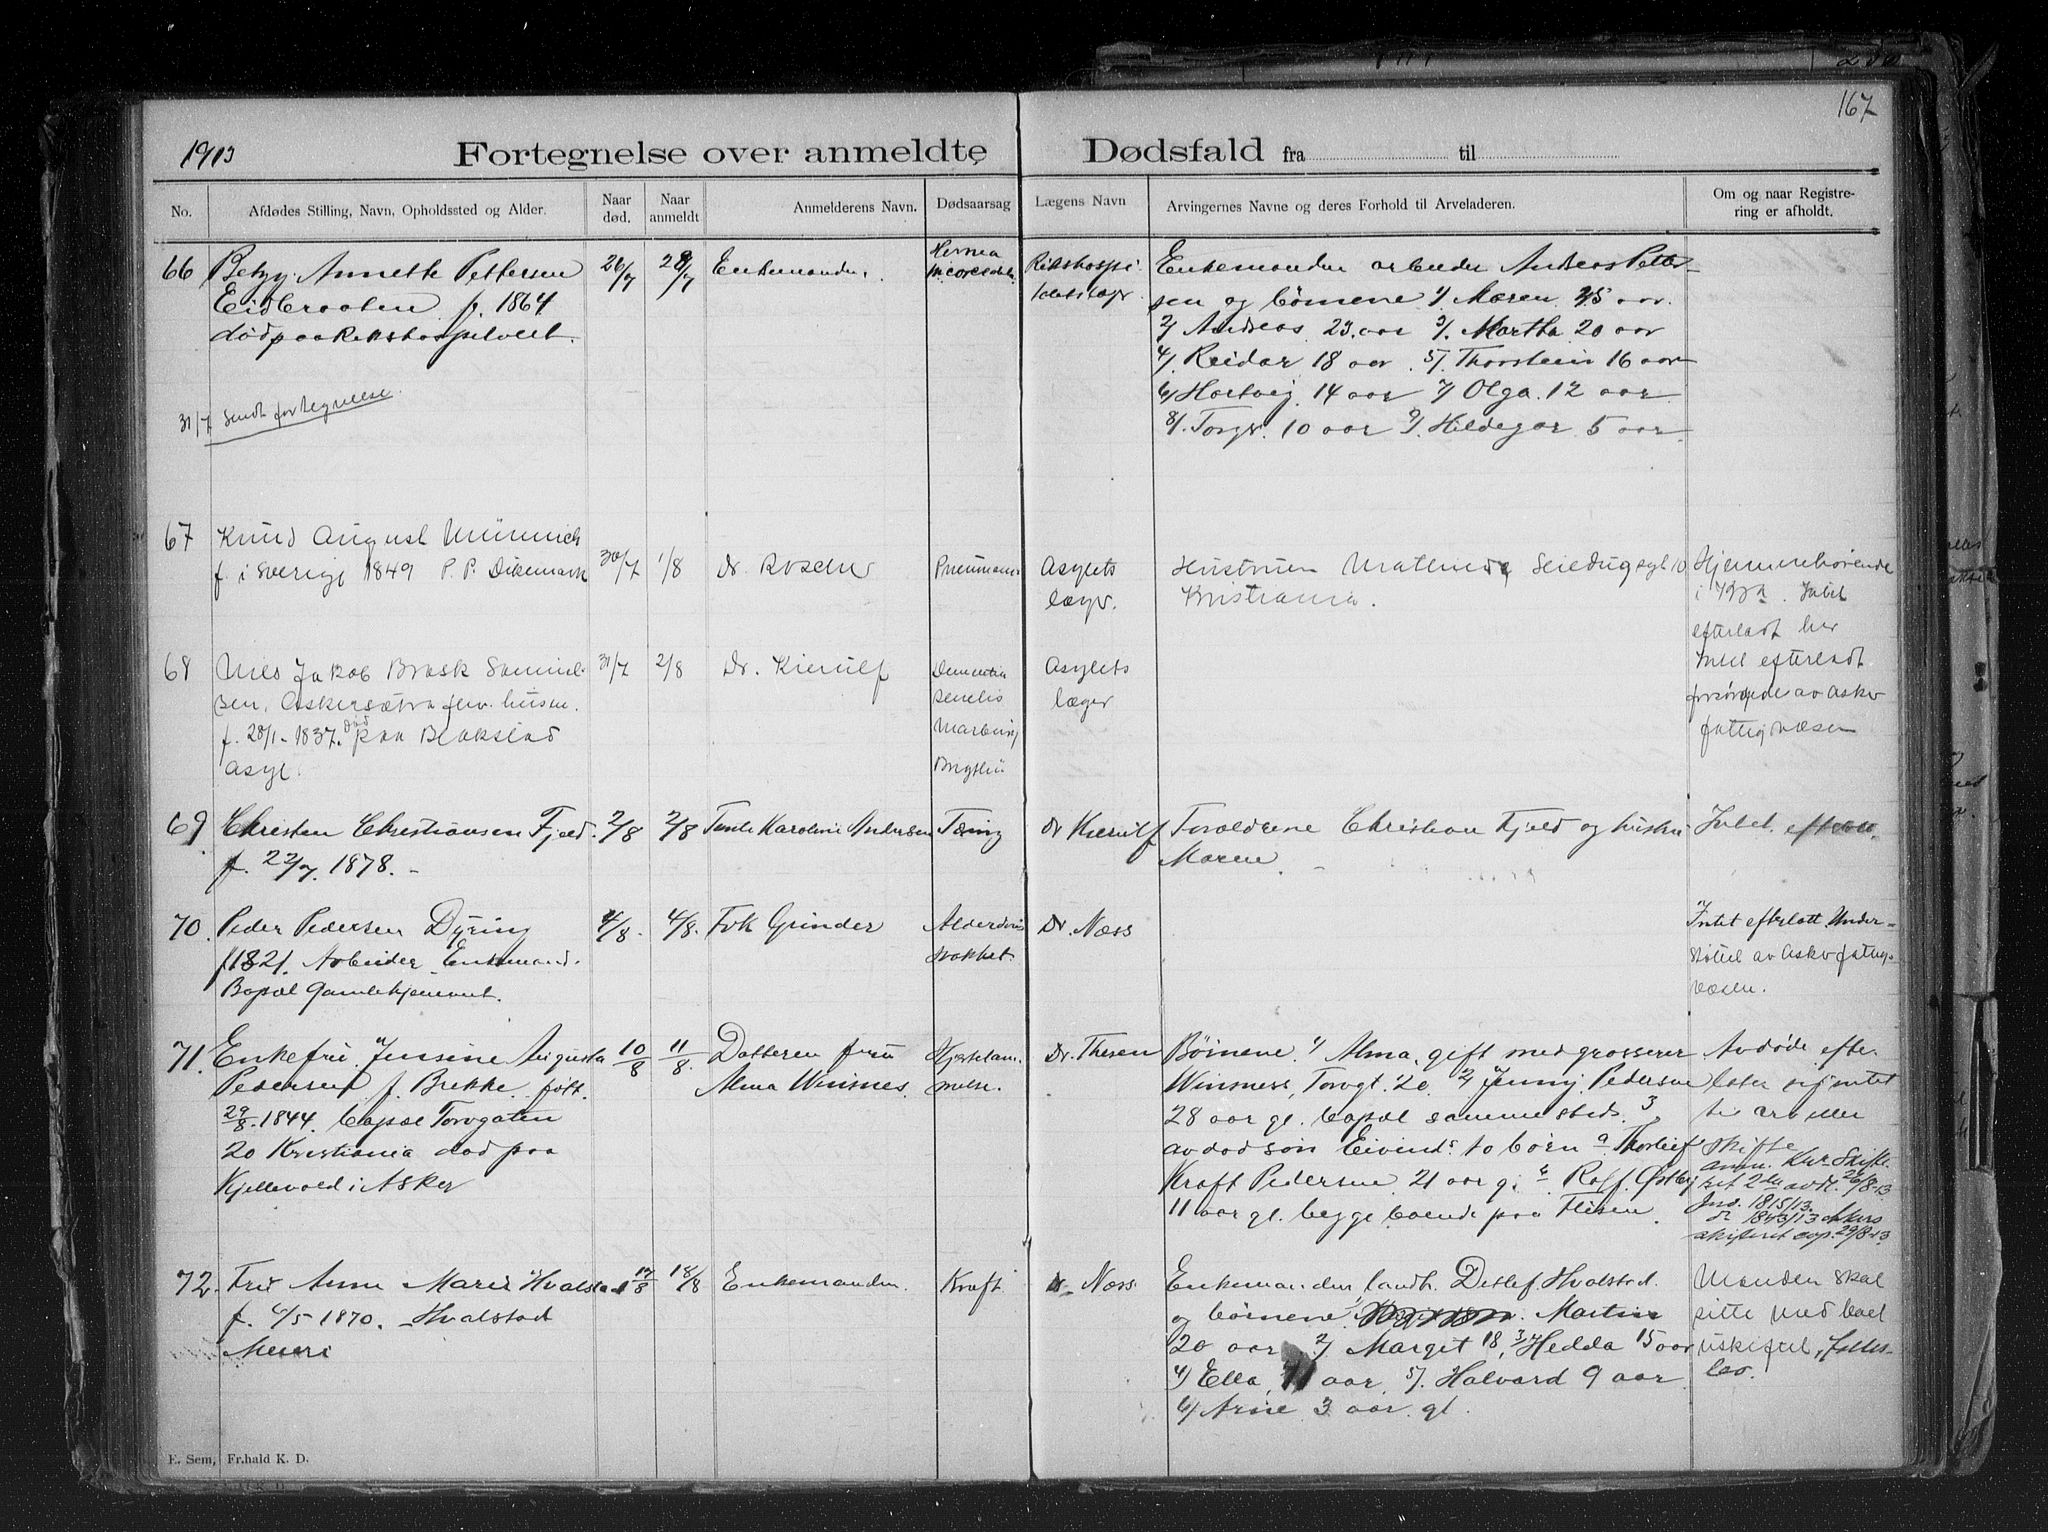 167
1913
Fortegnelse over anmeldte Dødsfald fra til
No.
Afdødes Stilling, Navn, Opholdssted og Alder.
Naar død.
Naar anmeldt
Anmelderens Navn.
Dødsaarsag
Lægens Navn
Arvingernes Navne og deres Forhold til Arveladeren.
Om og naar Registrering er afholdt.
66
Betzy Annette Pettersen
Eidbraaten f. 1864
død paa Rikshospitalet.
31/7 Sendt fortegnelse.
26/7
28/7
Enkemanden.
Hernia
Rikshospi
talets læger
Enkemanden arbeider Andreas Petter-
sen og børnene 1/ Maren 25 aar.
2/ Andreas 23 aar 3/ Martha 20 aar
4/ Reidar 18 aar 5/ Thorstein 16 aar
6/ Hartvig 14 aar 7/ Olga 12 aar
8/ Torgr. 10 aar 9/ Hildegar 5 aar
67
Knud August Münnich
f. i Sverige 1849 P. P. Dikemark
30/7
1/8
Dr. Roscher
Pneumoni
Asylets
læger.
Hustruen Mathilde Seildugsgt 10
Kristiania.
Hjemmehørende
i Kra. Intet
efterladt her
68
Nils Jakob Brask Samuel-
sen, Askersætra frv. husm.
f. 28/1-1837. død paa Blakstad
asyl.
31/7
2/8
Dr. Kierulf
Dementia
senilis
Marbrig
Asylets
læger
Intet efterladt
forsørgede av Asker
fattigvæsen
69
Christen Christiansen Fjeld.
f. 22/7. 1878. -
2/8
2/8
Tante Karoline Andersen
Tæring
Dr Kierulf
Forældrene Christian Fjeld og hustru
Maren.
Intet efterladt.
70.
Peder Pedersen Dyring
f. 1821. Arbeider Enkemand.
Bopæl Gamlehjemmet.
4/8.
4/8.
Frk Grinder
Alderdoms
svakhet.
Dr. Næss
Intet efterlatt. Under-
støttet av Asker fattigv-
væsen.
71.
Enkefru Jensine Augusta
Pedersen f. Brekke født.
29/8. 1844. bopæl Torvgaten
20 Kristiania død paa
Kjellevold i Asker
10/8
11/8.
Datteren fru
Alma Winsnes.
Hjertelam-
melse.
Dr. Thesen
Børnene 1/ Alma, gift med grosserer
Winsness, Torvgt. 20 2/ Jenny Pedersen
28 aar gl. bopæl sammesteds. 3
avdød søn Eivinds to børn a Thorleif
Kraft Pedersen 21 aar gl. b Rolf Østby
11 aar gl. begge boende paa Flisen
Avdøde efter-
later sig intet
te arv eller
skifte
anm. Kra Skifte-
ret 2den avd. 26/8-13
Jno. 1815/13.
1843/13 Akers
skifteret 29/8-13
72.
Fru Anna Marie Hvalstad
f. 4/5 1870. Hvalstad
17/8
18/8
Enkemanden.
Kræft
Dr. Næss
Enkemanden landh. Detlef Hvalstad.
og børnene 1/ Martin
20 aar 2/ Margit 18, 3/ Hedda 15 aar
4/ Ella, 11 aar, 5/ Halvard 9 aar
6/ Arne 3 aar gl.
Manden skal
sitte med boet
uskiftet, fælles-
bo.
E. Sem, Fr.hald K. D.